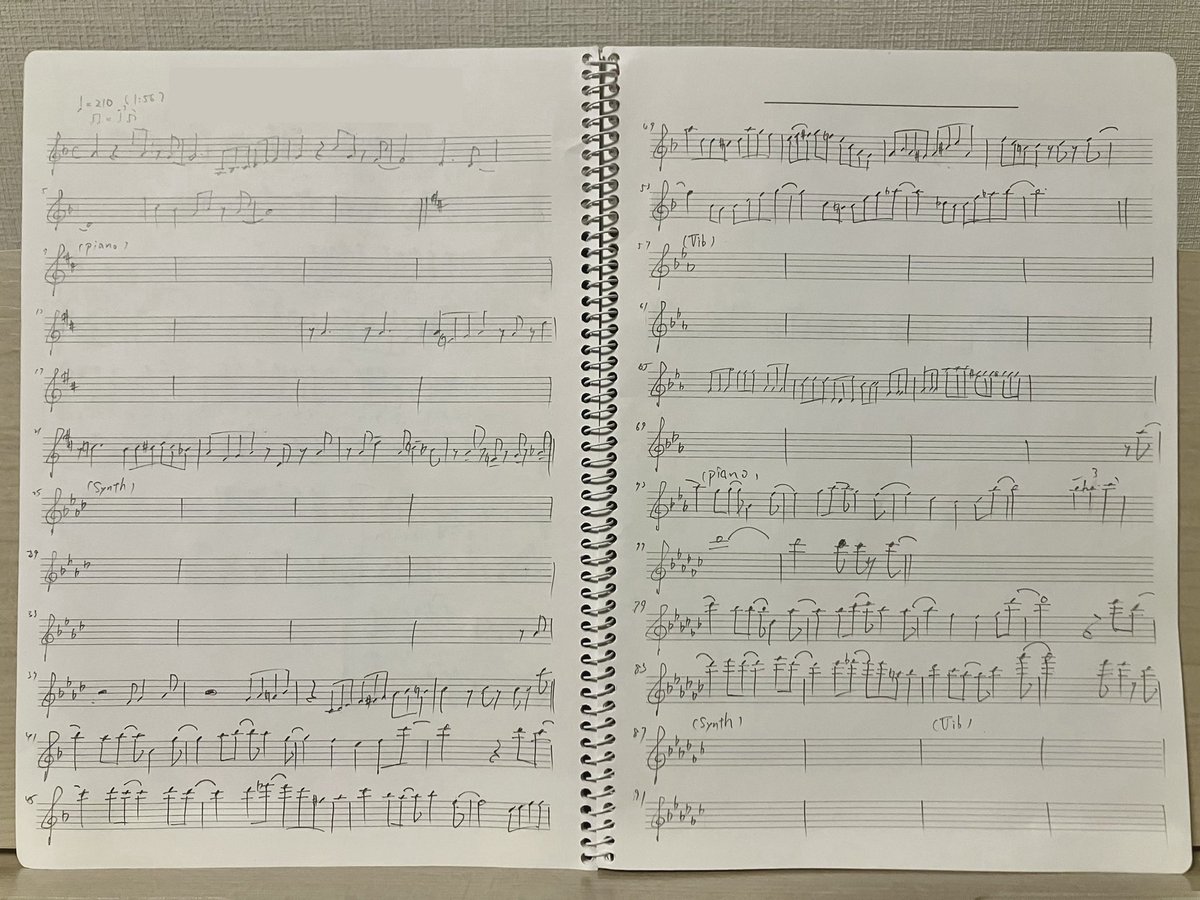 ♩=210 (1:56)
♫=
5
9 (piano)
13
17
21
25 (Synth)
29
33
37
41
45
49
53
57 (Vib)
61
65
69
73 (piano)
3
77
79
83
87 (Synth) (Vib)
91